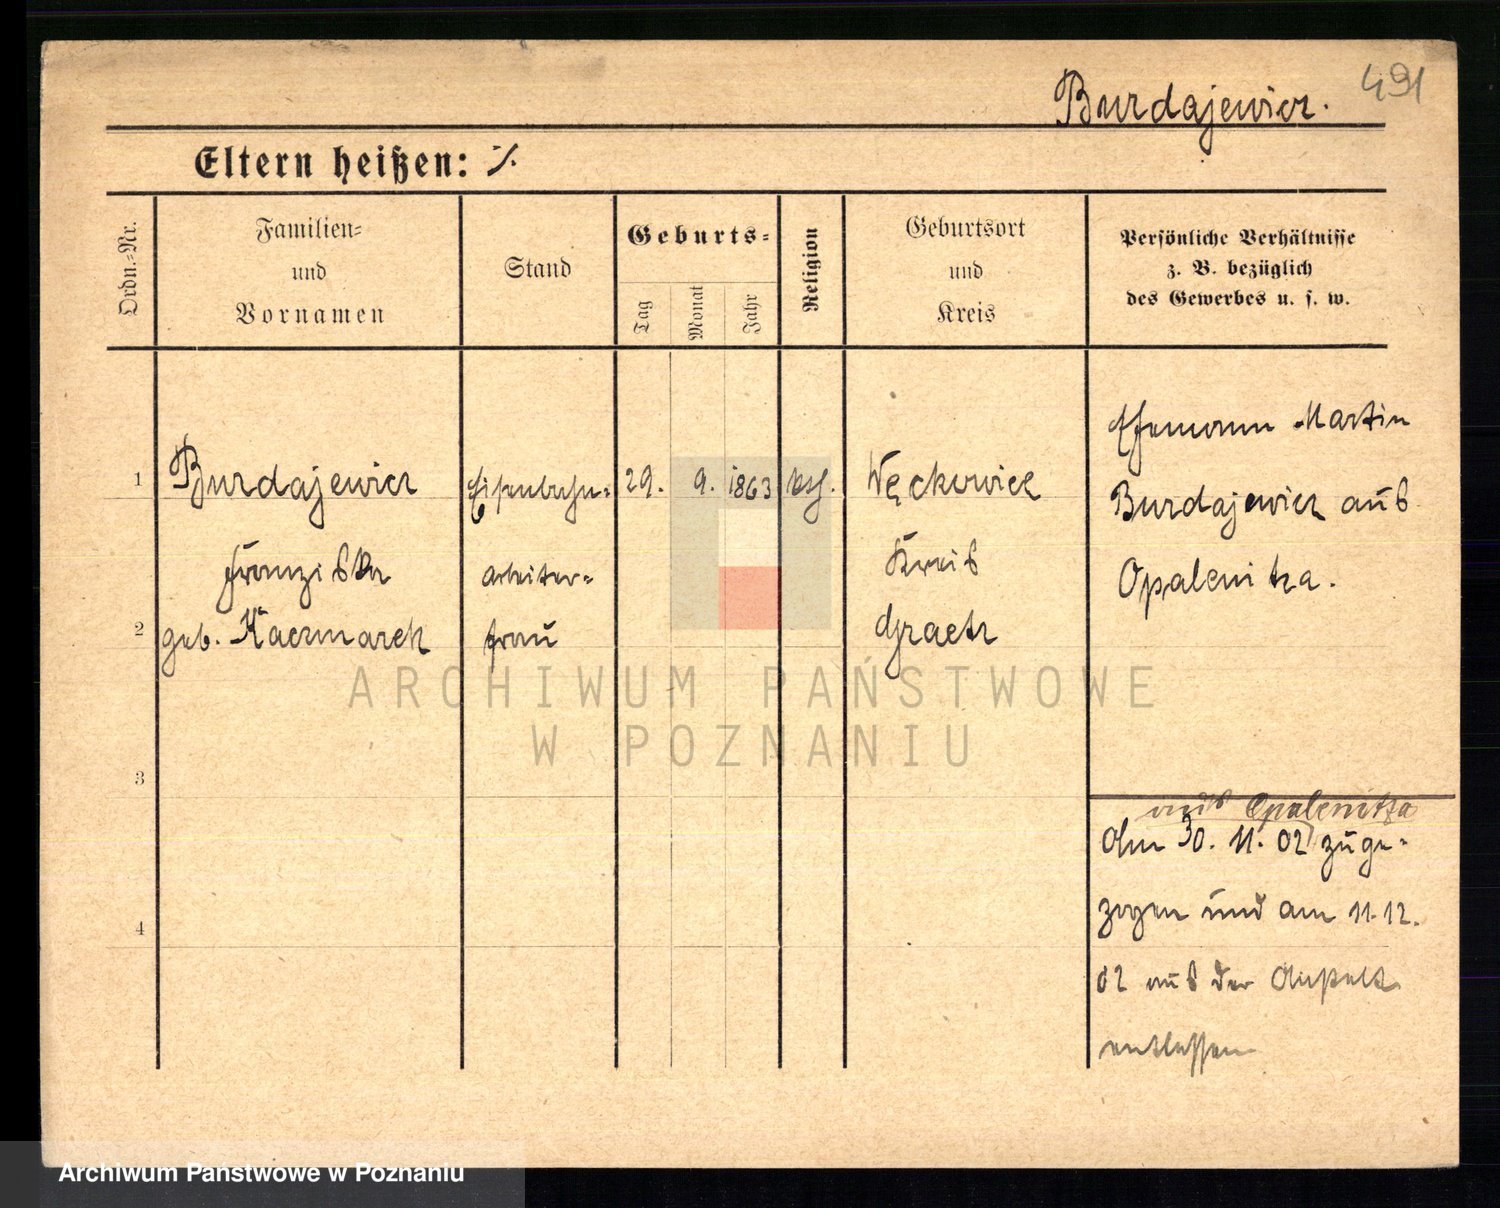 491
Burdajewicz.
Eltern heißen: ./.
Ordn.=Nr.
Familien=
und
Vornamen
Stand
Geburts=
Tag
Monat
Jahr
Religion
Geburtsort
und
Kreis
Persönliche Verhältnisse
z. B. bezüglich
des Gewerbes u. s. w.
1
Burdajewicz
Franziska
2
geb. Kaczmarek
Eisenbahn=
arbeiter=
frau
29. 9. 1863
kath.
Kreis
Graetz
Ehemann Martin
Burdajewicz aus
Opalenitza.
3
4
aus Opalenitza
Am 30. 11. 02 zuge=
zogen und am 11. 12.
02 aus der Anstalt
entlassen
ARCHIWUM PAŃSTWOWE
W POZNANIU
Archiwum Państwowe w Poznaniu